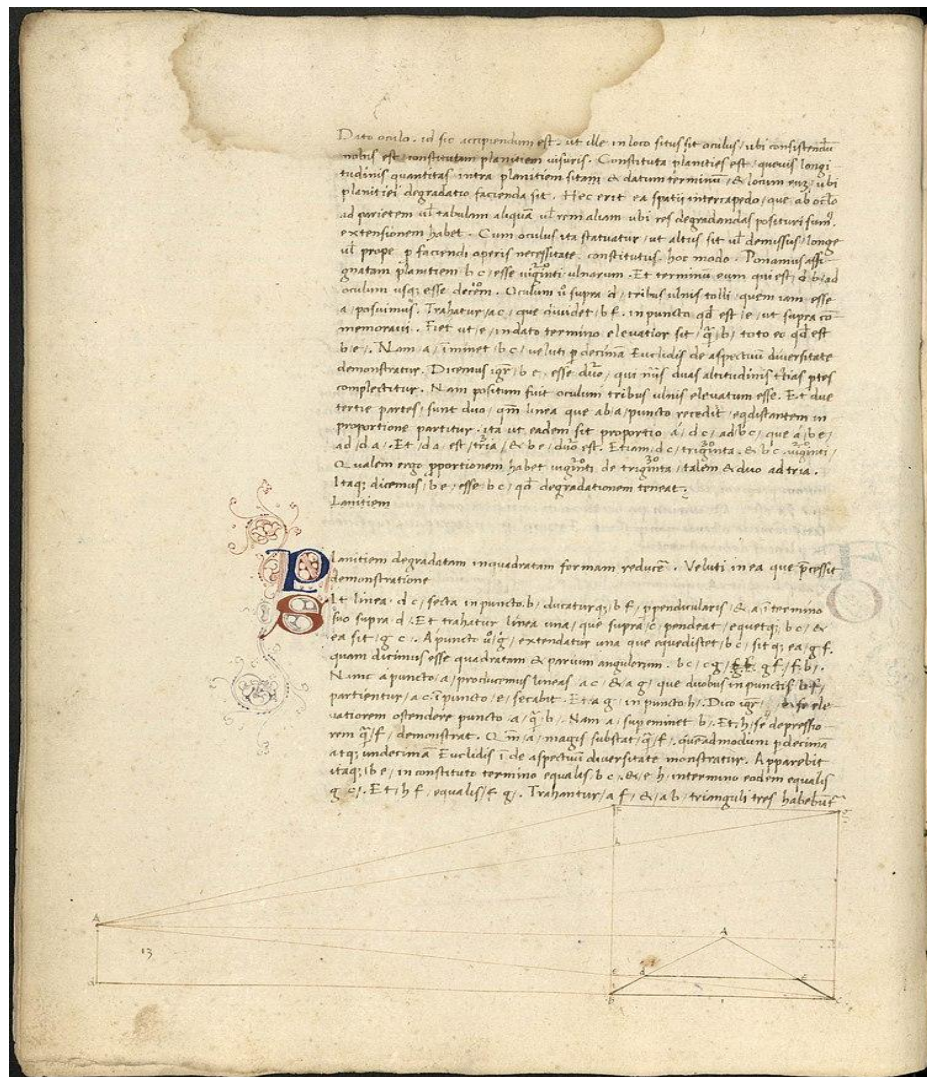 Dato oculo. id sic accipiendum est. ut ille in loco situs sit oculus / ubi consistendū
nobis est / constitutam planitiem visuris. Constituta planities est / quevis longi
tudinis quantitas intra planitiem sitam & datum terminū / & locum eius / ubi
planitiei degradatio facienda sit. Hec erit ea spatii intercapedo / que ab oc̄lo
ad parietem vl̄ tabulam aliquā vl̄ rem aliam ubi res degradandas posituri sum9
extensionem habet. Cum oculus ita statuatur / ut altus sit vl̄ demissus / longe
vl̄ prope p faciendi operis necessitate. constitutus hoc modo. Ponamus assi-
gnatam planitiem b c / esse viginti ulnarum. Et terminū eum qui est / d b / ad
oculum usq; esse decem. Oculum v̄o supra d / tribus ulnis tolli / quem iam esse
a / posuimus. Trahatur / a c / que dividet / b f. in puncto qd̄ est / e / ut supra cō-
memoravi. Fiet ut / e / in dato termino elevatior sit / q̄ / b / toto eo qd̄ est
b e /. Nam a / īminet b c / veluti p decimā Euclidis de aspectuū diversitate
demonstratur. Dicemus igr̄ / b e / esse duo / qui
complectitur. Nam positum fuit oculum tribus ulnis elevatum esse. Et due
tertie partes / sunt duo / qm̄ linea que ab a / puncto recedit / eqdistantem in
proportione partitur. ita ut eadem sit proportio a / d c / ad b c / que a / b e /
ad / d a. Et / d a / est / tria / & b e / duo est. Etiam / d c / triginta. & b c viginti /
Qualem ergo pportionem habet viginti de triginta / talem & duo ad tria.
Itaq; dicemus / b e / esse b c / qd̄ degradationem teneat.
Lanitiem
Planitiem degradatam in quadratam formam reducere. Veluti in ea que p̄cessit
demonstratione
Sit linea d c / secta in puncto b / ducaturq; b f / ppendicularis / & a ī termino
suo supra d. Et trahatur linea una / que supra c / pendeat / equetq; b c / &
ea sit / g c. A puncto v̄o / g / extendatur una que equedistet / b c / sit q; ea / g f.
quam dicimus esse quadratam & parium angulorum. b c / c g / g f / f b /.
Nunc a puncto / a / producemus lineas a c / & a g / que duobus in punctis b f /
partientur / a c. ī puncto / e / secabit. Et a g / in puncto h /. Dico igr̄ / se ele
vatiorem ostendere puncto a / q̄ b /. Nam a / supeminet b /. Et / h / se depressio
rem q̄ / f / demonstrat. Qm̄ / a / magis substat / q̄ / f. queadmodum p decimā
atq; undecimā Euclidis ī de aspectuū diversitate monstratur. Apparebit
itaq; / b e / in constituto termino equalis / b c. & / e h / in termino eodem equalis
g c /. Et / h f / equalis / f g /. Trahantur / a f / & / a b / trianguli tres habebūt
g
h
A
A
13
e
d
E
b